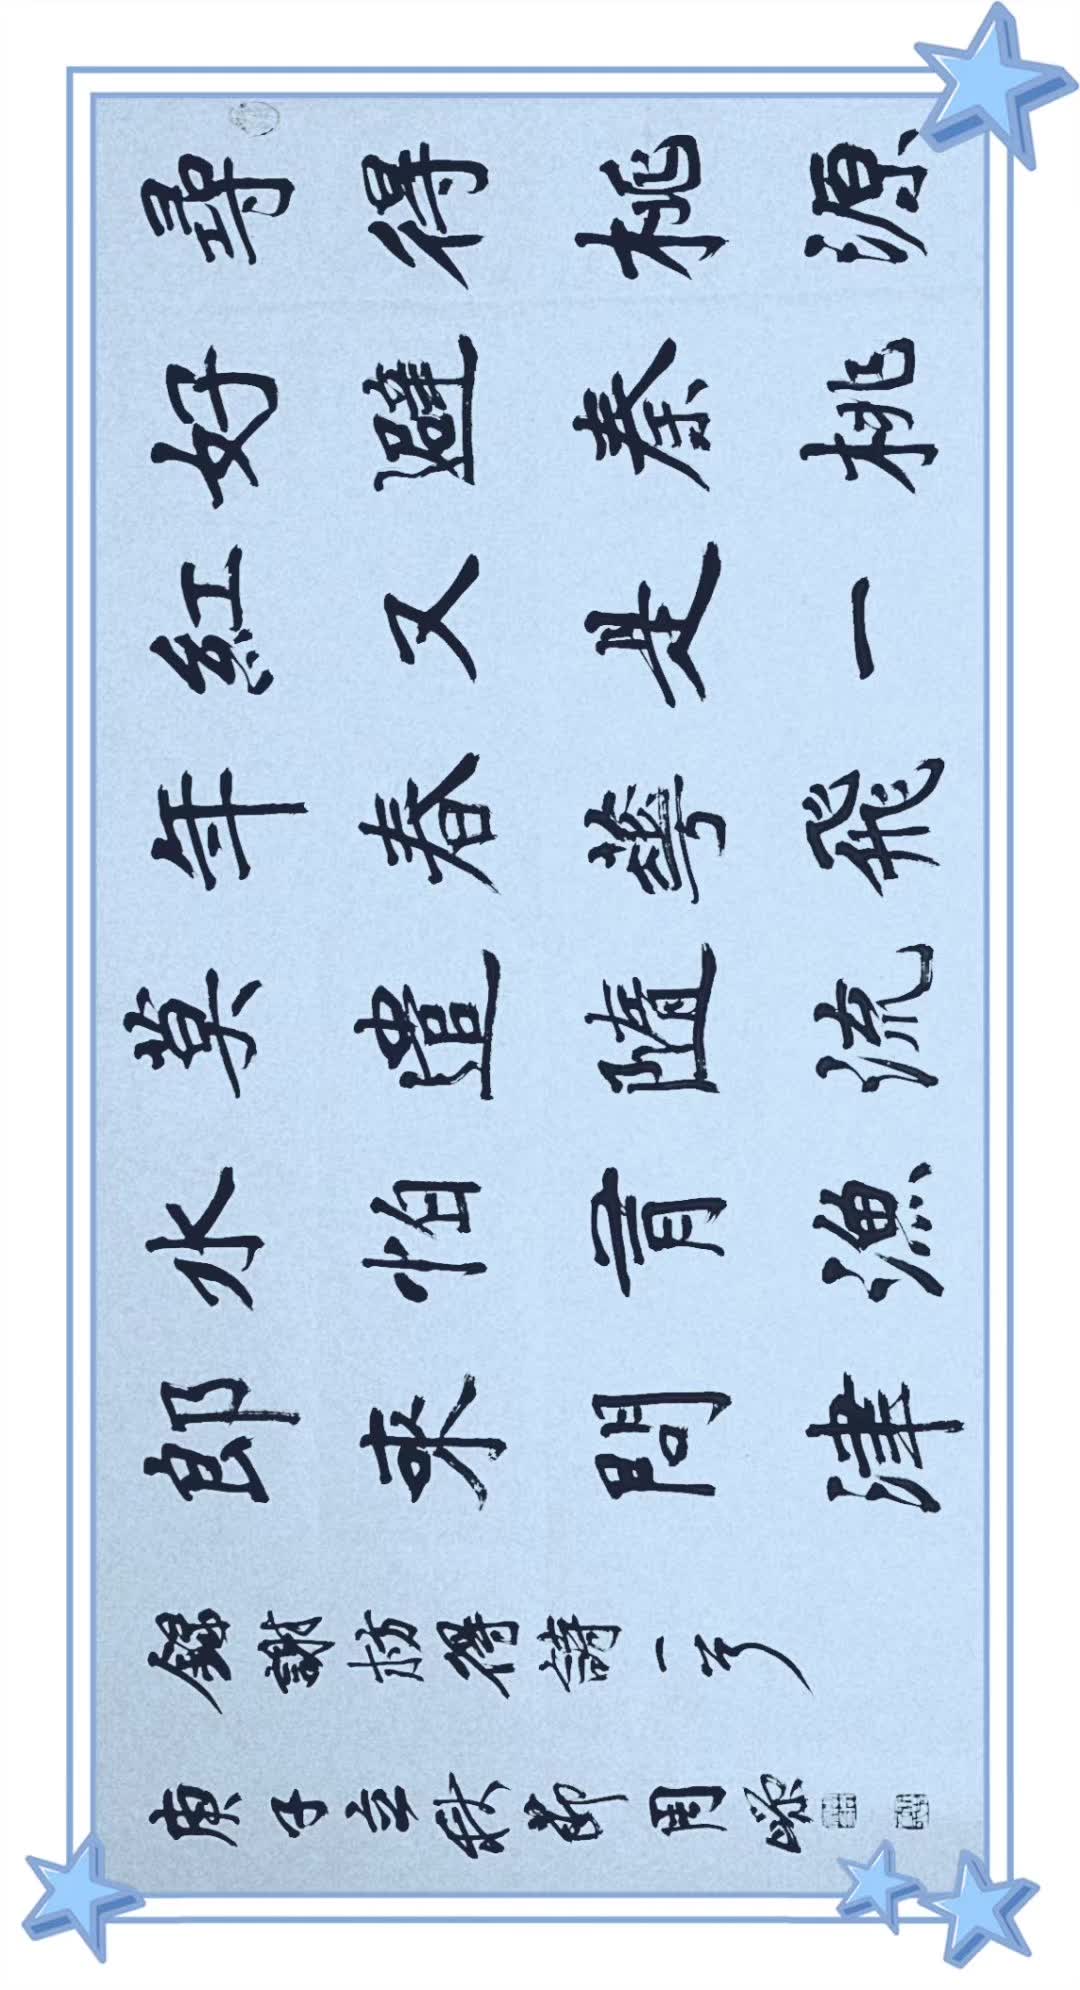 尋得桃源
好避秦桃
紅又是一
年春華飛
莫遣隨流
水怕有漁
郎来問津
録謝枋得詩一首
庚子立秋節周